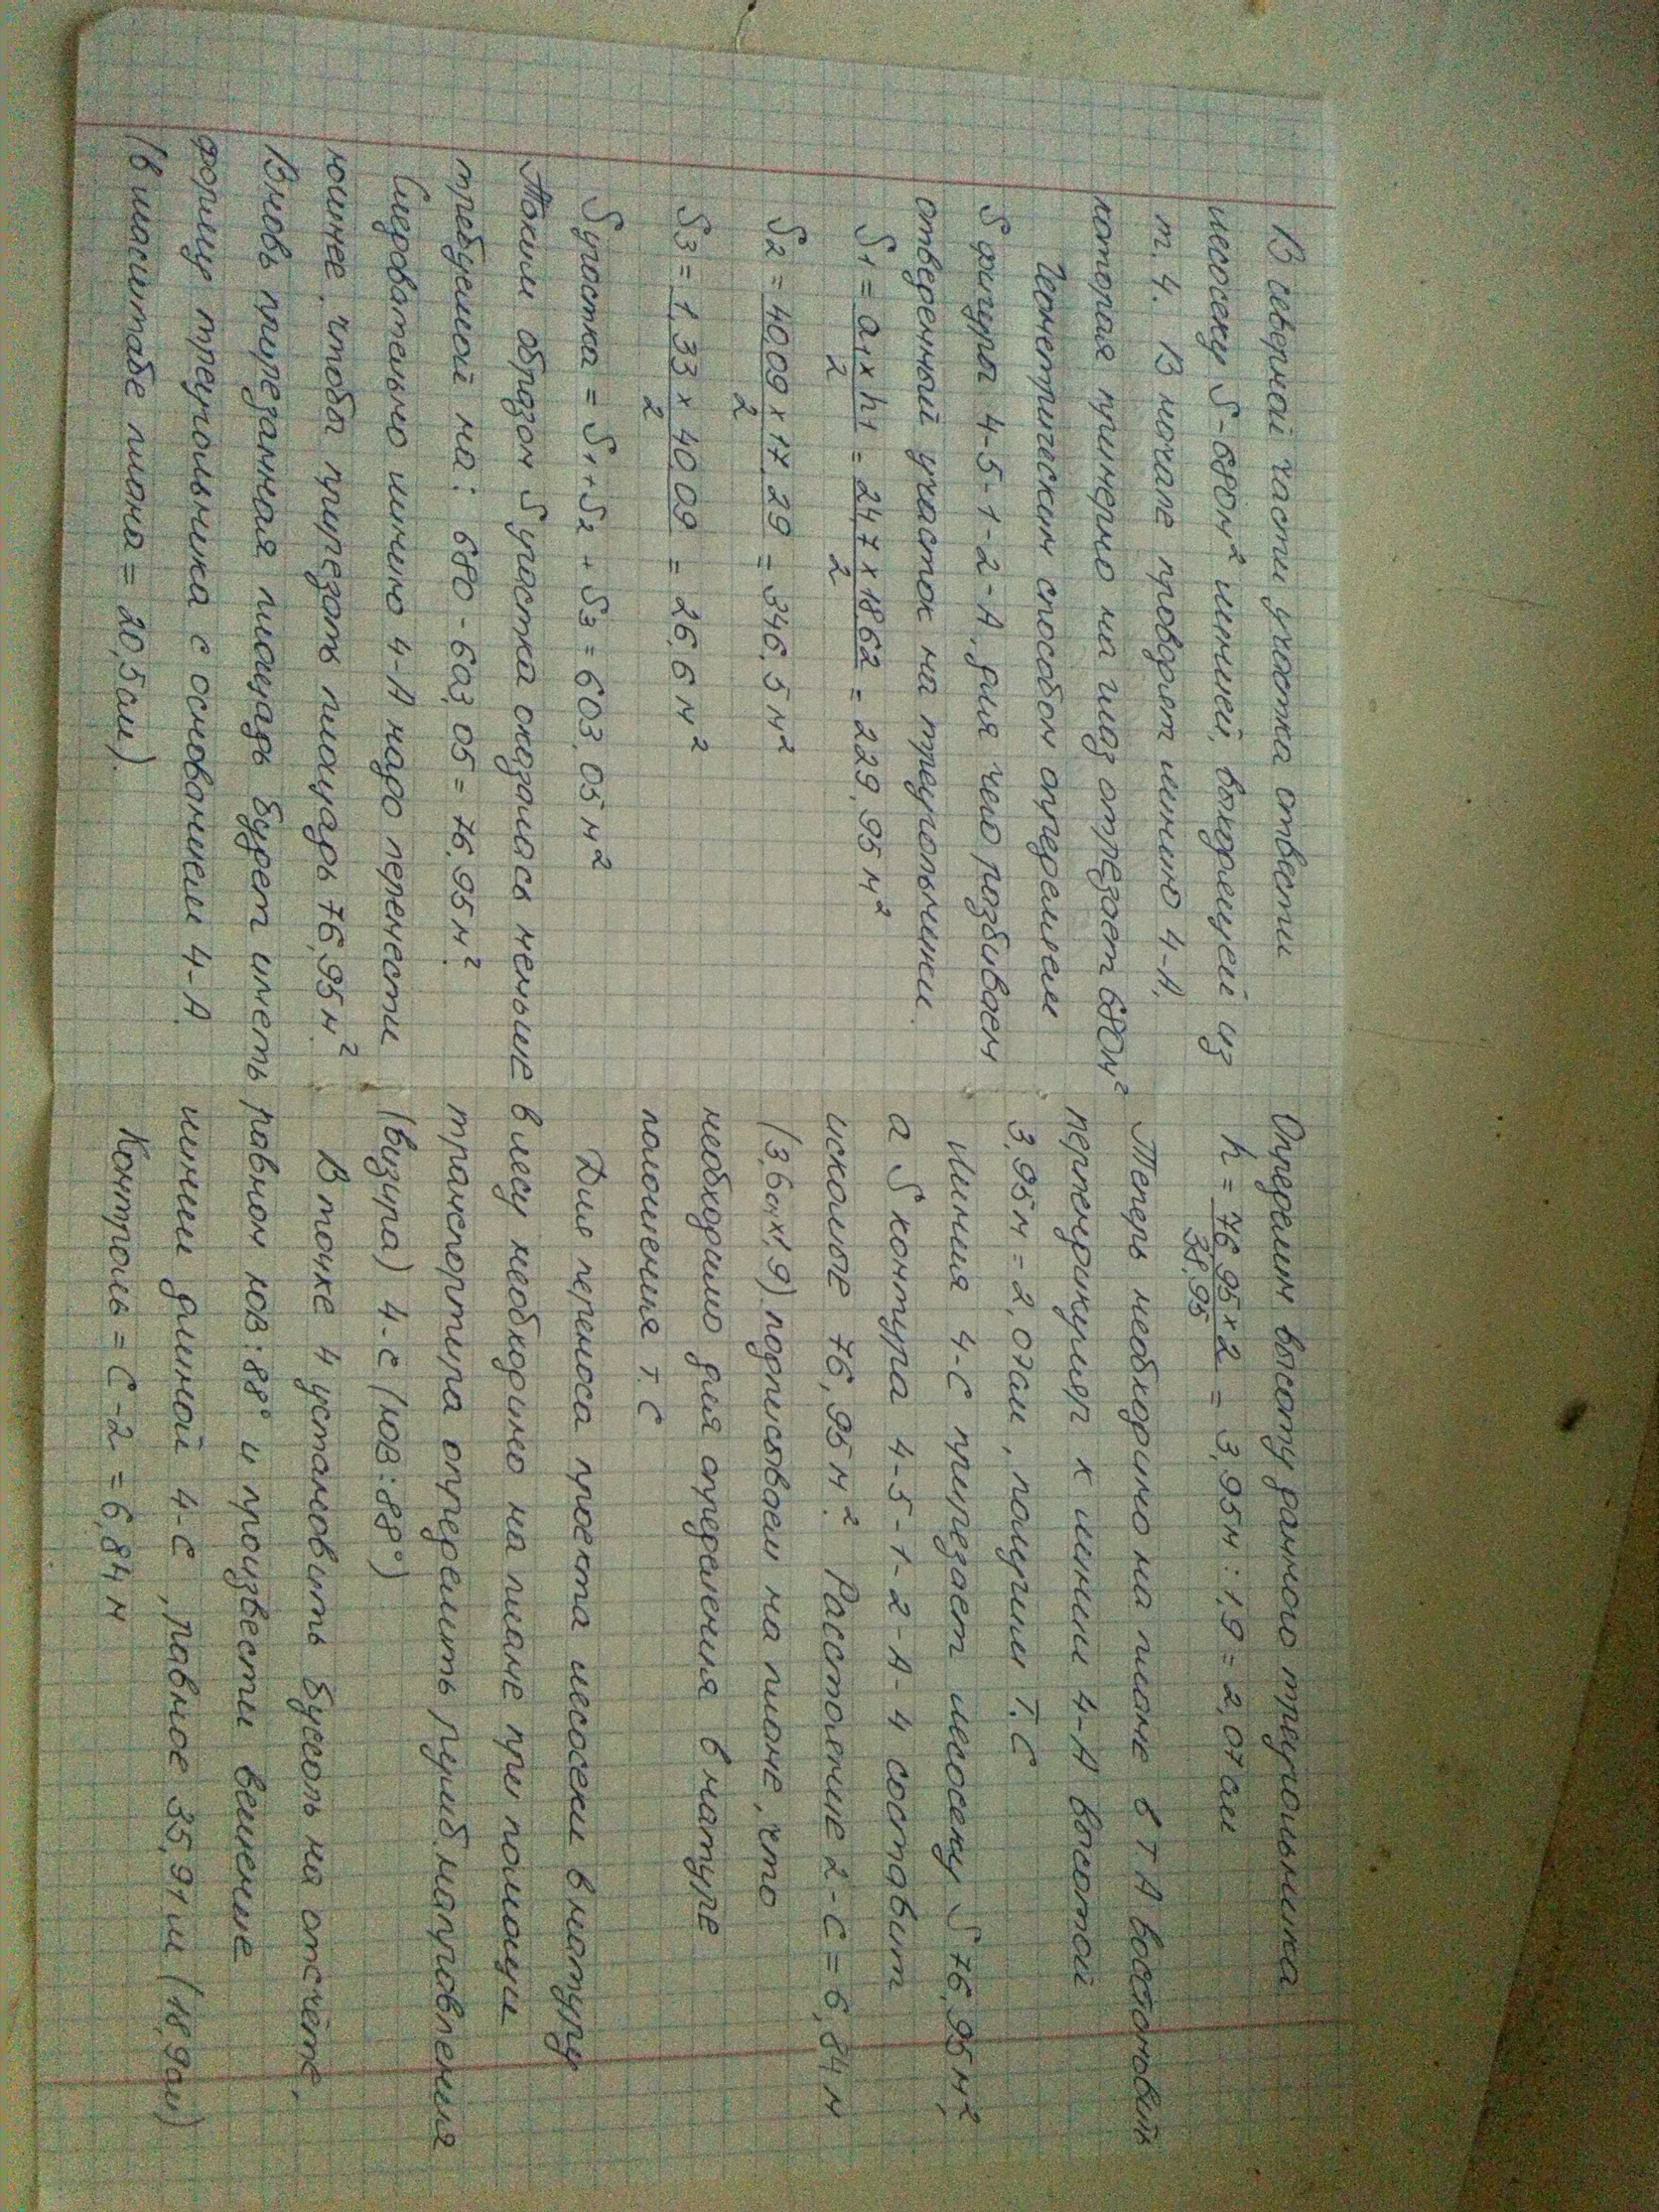 В северной части участка отвести
лесосеку S-680м² линией, выходящей из
т. 4. В начале проводят линию 4-А,
которая примерно на глаз отрезает 680м²
Геометрическим способом определяем
S фигуры 4-5-1-2-А, для чего разбиваем
отведенный участок на треугольники.
S1 = a1 x h1 / 2 = 24,7 x 18,62 / 2 = 229,95 м²
S2 = 40,09 x 17,29 / 2 = 346,5 м²
S3 = 1,33 x 40,09 / 2 = 26,6 м²
S участка = S1 + S2 + S3 = 603,05 м²
Таким образом S участка оказалась меньше
требуемой на: 680 - 603,05 = 76,95 м².
Следовательно линию 4-А надо перенести
южнее, чтобы прирезать площадь 76,95 м².
Вновь прирезанная площадь будет иметь
форму треугольника с основанием 4-А
(в масштабе плана = 20,5 см).
Определим высоту данного треугольника
h = 76,95 x 2 / 38,95 = 3,95 м : 1,9 = 2,07 см
Теперь необходимо на плане в т А восстановить
перпендикуляр к линии 4-А высотой
3,95 м = 2,07 см, получим т. С
Линия 4-С прирезает лесосеку S 76,95 м²,
а S контура 4-5-1-2-А-4 составит
искомые 76,95 м². Расстояние 2-С = 6,84 м
(3,6 см x 1,9) подписываем на плане, что
необходимо для определения в натуре
положения т. С
Для переноса проекта лесосеки в натуру
в лесу необходимо на плане при помощи
транспортира определить румб направления
(визира) 4-С (ЮВ:88°)
В точке 4 установить буссоль на отсчёте,
равном ЮВ:88° и произвести вешение
линии длиной 4-С, равное 35,91 м (18,9 см)
Контроль = С-2 = 6,84 м